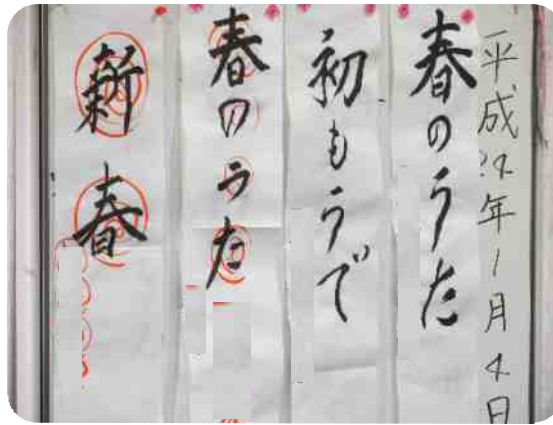 平成24年1月4日
春のうた
初もうで
春のうた
新春